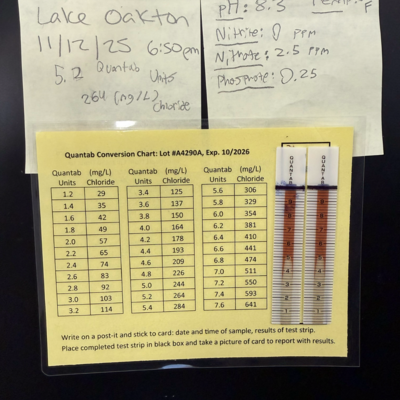 Lake Oakton
11/12/25 6:50pm
5.2 Quantab Units
264 (mg/L) Chloride
pH: 8.3
F
Nitrite: 0 ppm
Nitrate: 2.5 ppm
0.25
Quantab Conversion Chart: Lot #A4290A, Exp. 10/2026
Quantab Units (mg/L) Chloride
1.2 29
1.4 35
1.6 42
1.8 49
2.0 57
2.2 65
2.4 74
2.6 83
2.8 92
3.0 103
3.2 114
Quantab Units (mg/L) Chloride
3.4 125
3.6 137
3.8 150
4.0 164
4.2 178
4.4 193
4.6 209
4.8 226
5.0 244
5.2 264
5.4 284
Quantab Units (mg/L) Chloride
5.6 306
5.8 329
6.0 354
6.2 381
6.4 410
6.6 441
6.8 474
7.0 511
7.2 550
7.4 593
7.6 641
QUANTAB
4
3
2
1
QUANTAB
4
3
2
1
Write on a post-it and stick to card: date and time of sample, results of test strip.
Place completed test strip in black box and take a picture of card to report with results.